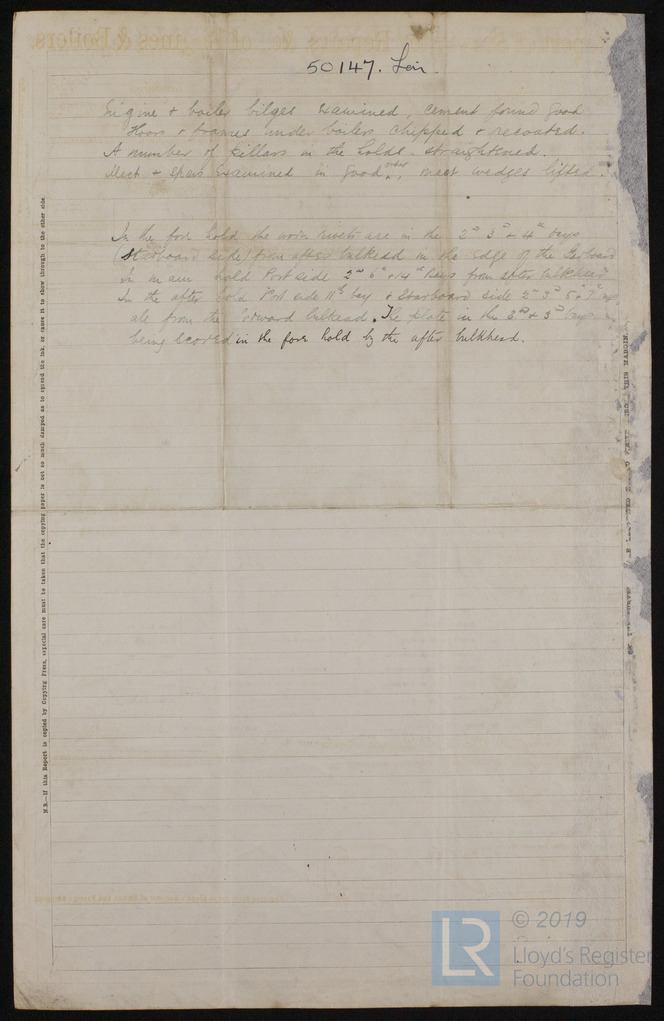 50147. Lon
Engine + boiler bilges examined, cement found good
floors + frames under boilers chipped + recoated.
A number of pillars in the holds straightened.
Mast + spars examined in good order, mast wedges lifted.
In the fore hold the worn rivets are in the 2nd 3rd + 4th bays
(Starboard side) from after bulkhead in the edge of the Garboard
in main hold Port side 2nd 6th + 14th bays from after bulkhead
In the after hold Port side 11th bay + Starboard side 2nd 3rd 5th + 7th
all from the forward bulkhead. The plate in the 2nd + 3rd bays
being scored in the fore hold by the after bulkhead.
N.B.—If this Report is copied by Copying Press, especial care must be taken that the copying paper is not so much damped as to spread the ink, or cause it to show through to the other side.
THIS MARGIN.
LR
© 2019
Lloyd's Register
Foundation